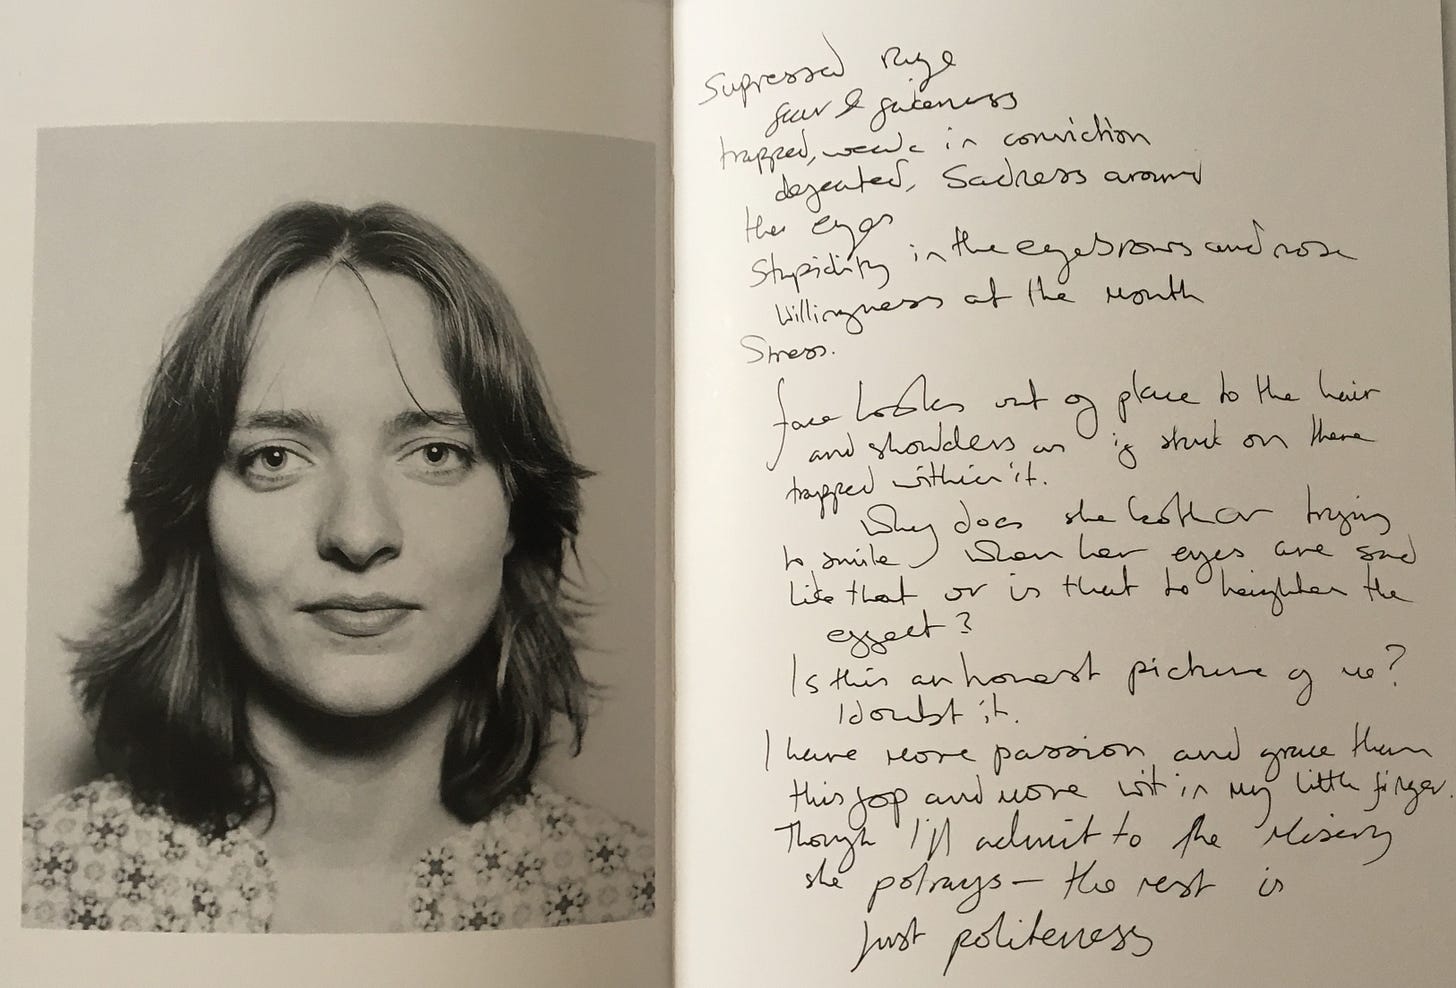 Supressed Rage
fear &
trapped, weak in conviction
defeated, Sadness around
the eyes
Stupidity in the eyebrows and nose
Willingness at the mouth
Stress.
face looks out of place to the hair
and shoulders as if stuck on there
trapped within it.
Why does she bother trying
to smile when her eyes are sad
like that or is that to heighten the
effect?
Is this an honest picture of me?
I doubt it.
I have more passion and grace than
this fop and more wit in my little finger.
Though I'll admit to the Misery
she potrays – the rest is
just politeness